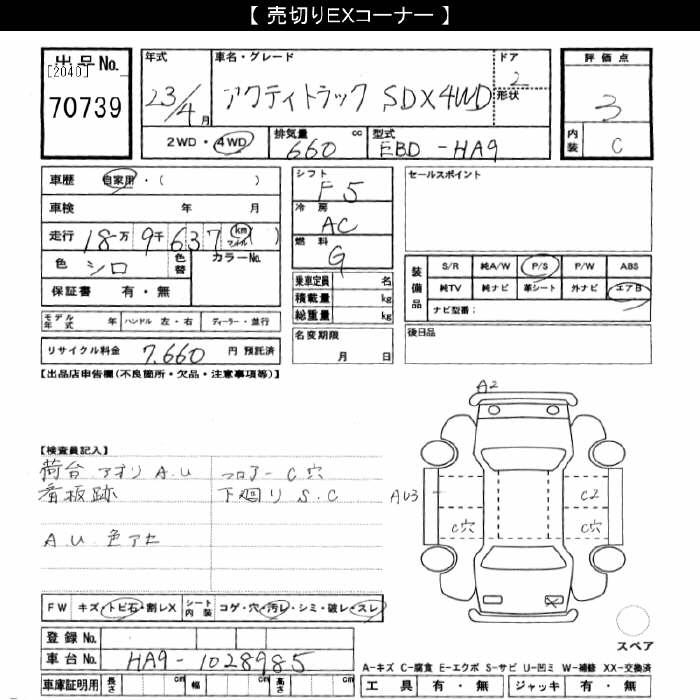 【 売切りEXコーナー 】
出品No.
[2040]
70739
年式
23/4月
車名・グレード
アクティトラック SDX4WD
ドア
2
形状
評価点
3
内装
C
2WD・4WD
排気量
660 cc
型式
EBD-HA9
車歴 自家用・( )
車検 年 月
走行 18万 9千 6 3 7 km マイル ( )
色 シロ
色替
カラーNo.
保証書 有・無
シフト
F5
冷房
AC
燃料
G
乗車定員 名
積載量 kg
総重量 kg
セールスポイント
装備品
S/R 純A/W P/S P/W ABS
純TV 純ナビ 革シート 外ナビ エアB
ナビ型番：
モデル年式 年 ハンドル 左・右 ディーラー・並行
リサイクル料金 7,660 円 預託済
名変期限
月 日
後日品
【出品店申告欄(不良箇所・欠品・注意事項等)】
【検査員記入】
荷台 アオリ A.U フロアー C穴
看板跡 下廻り S.C
A.U. 色アセ
A2
AU3
C2
C穴
C穴
FW キズ・トビ石・割レX シート内装 コゲ・穴・汚レ・シミ・破レ・スレ
スペア
登録No.
車台No. HA9-1028985
車庫証明用 長さ cm 幅 cm 高さ cm
A-キズ C-腐食 E-エクボ S-サビ U-凹ミ W-補修 XX-交換済
工具 有・無 ジャッキ 有・無